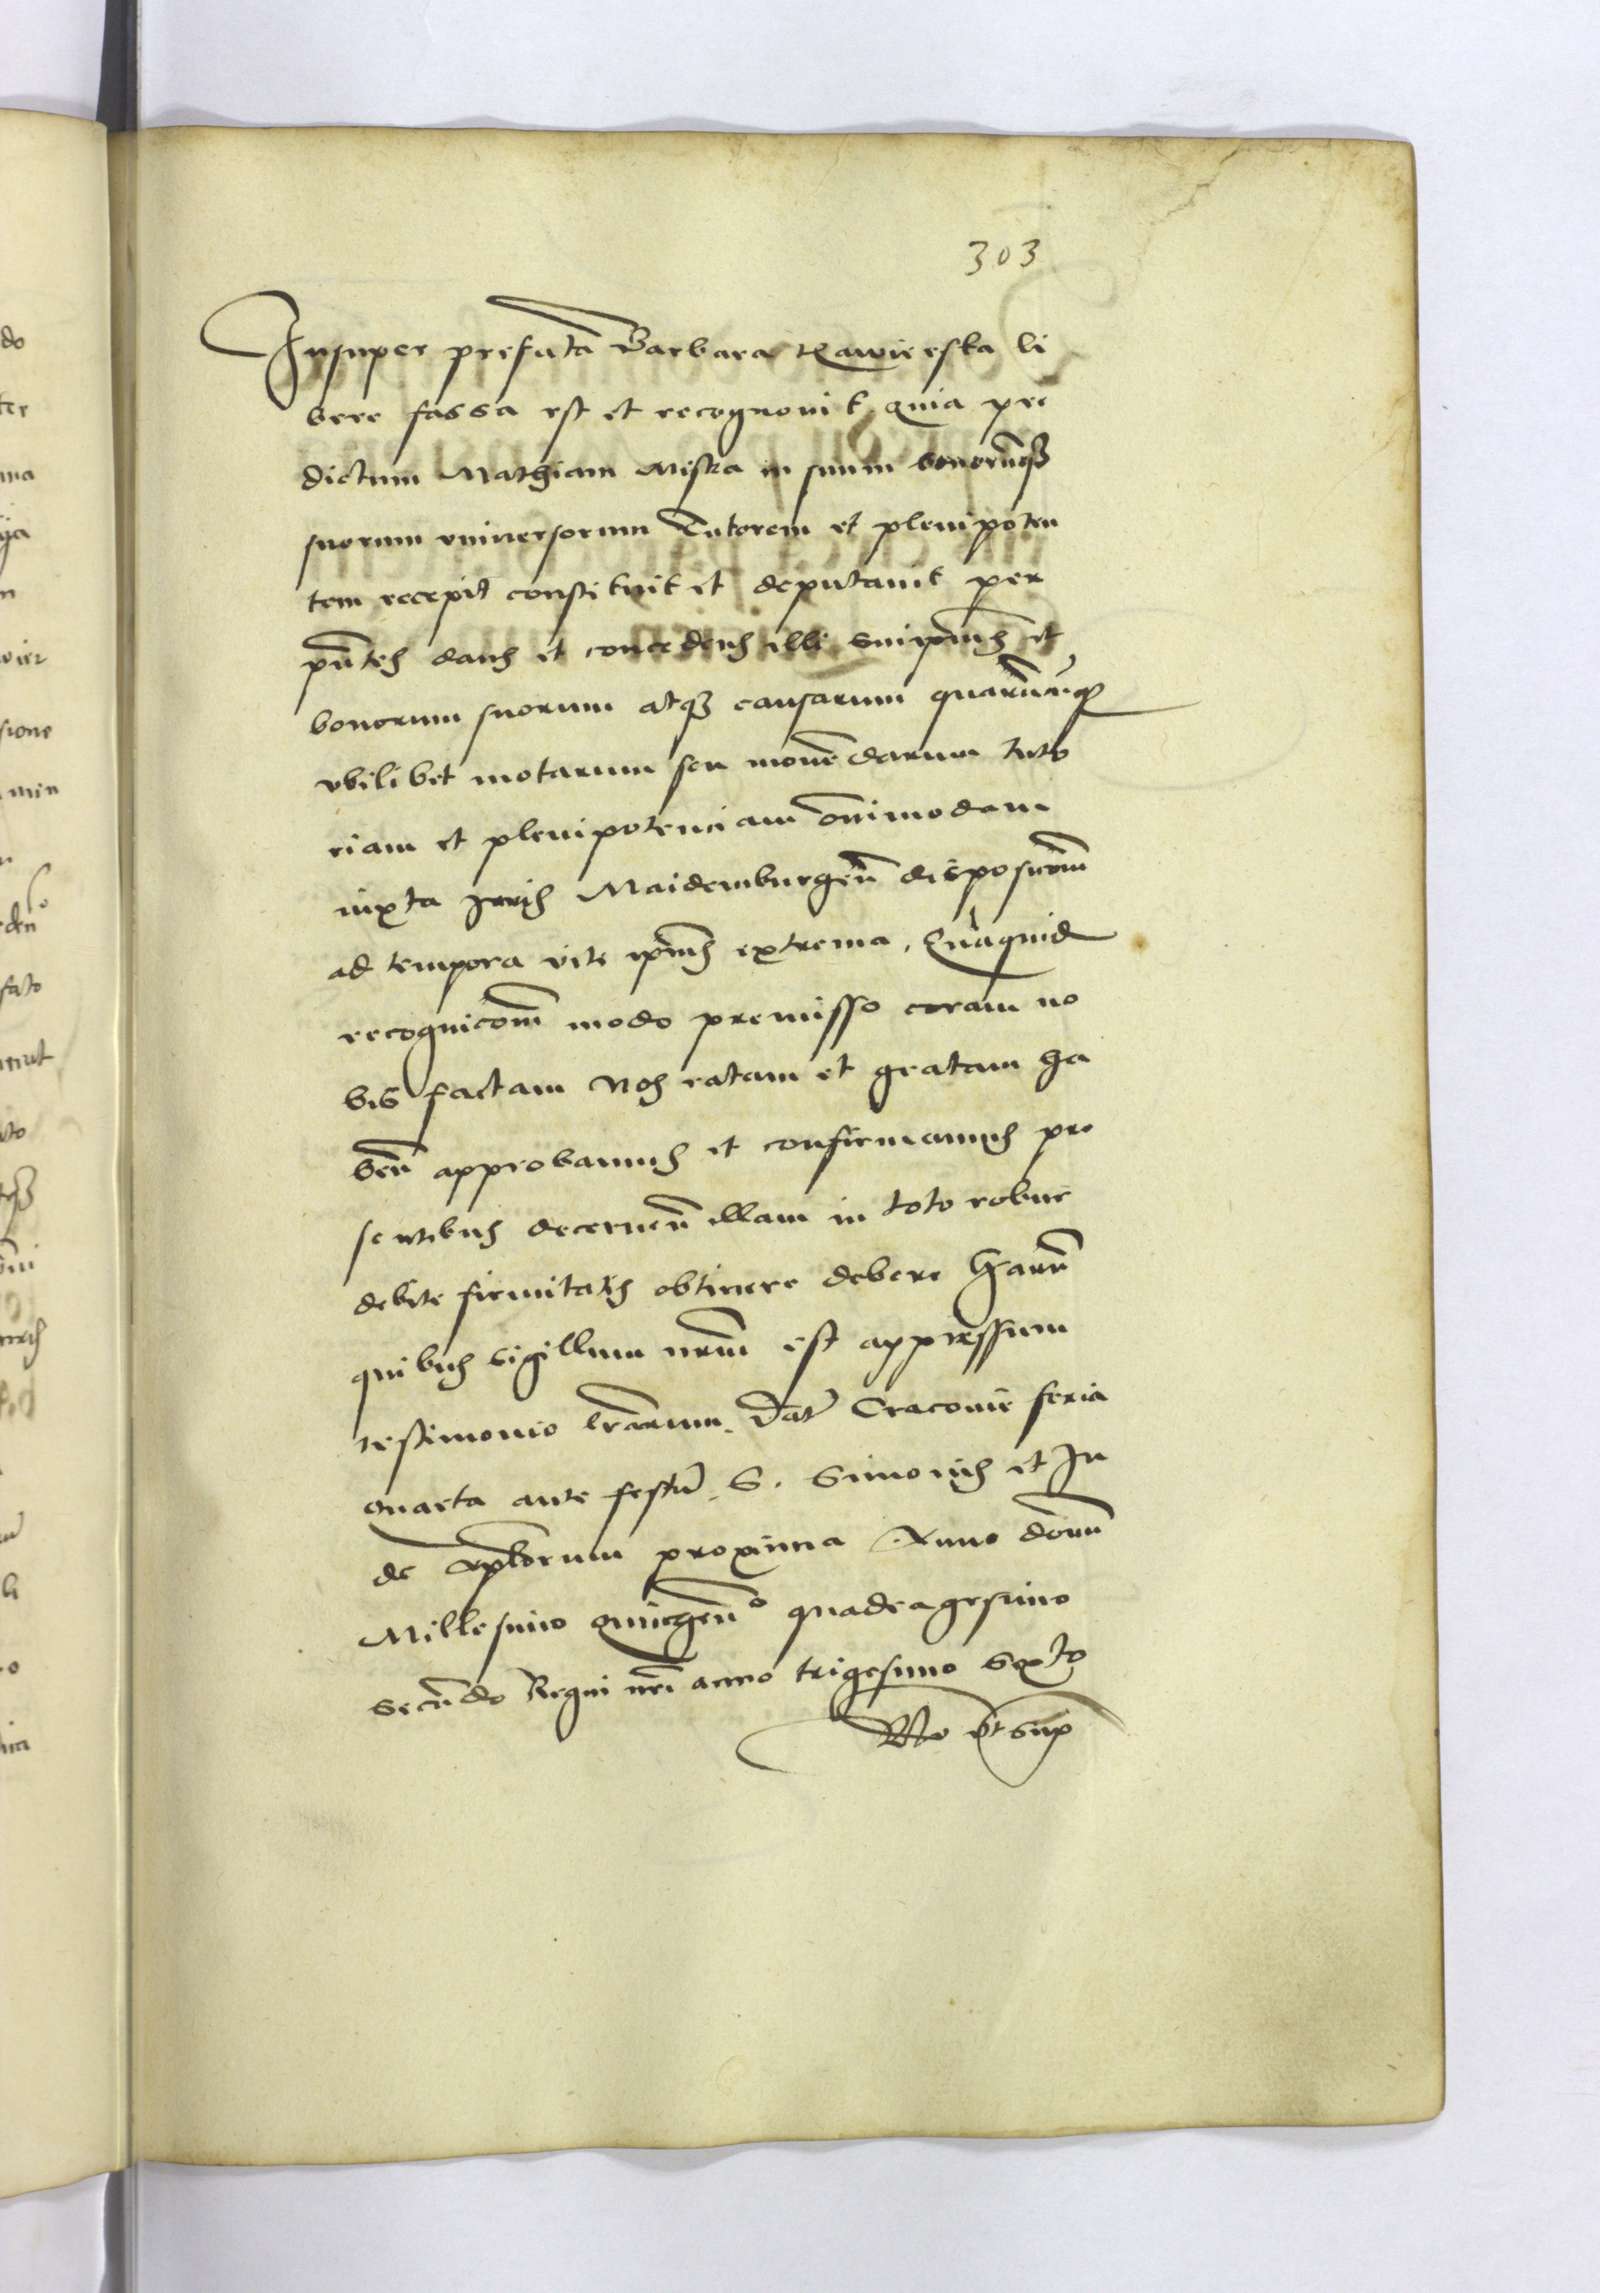 303
Insuper prefata Barbara Rawierska li
bere fassa est et recognovit quia pre
dictum Mathiam Miska in suum bonorumq3
suorum universorum Tutorem et plenipoten
tem recepit constituit et deputavit per
pntes dans et concedens illi sui ipius et
bonorum suorum atq3 causarum quarucuq3
ubilibet motarum seu movedarum tuto
riam et plenipotenciam oimodam
iuxta Iuris Maidemburgen disposicom
ad tempora vite ipius extrema. Quaquid
recognicom modo premisso coram no
bis factam Nos ratam et gratam ha
ben approbamus et confirmamus pre
sentibus decernen illam in toto robur
debite firmitatis obtinere debere Harum
quibus sigillum nrum est appressum
testimonio lrarum. Dat Cracovie feria
quarta ante festu. S. Simonis et Iu
de Aplorum proxima Anno domi
Millesimo quingen° quadragesimo
secundo Regni nri anno trigesimo sexto
Ro ut sup